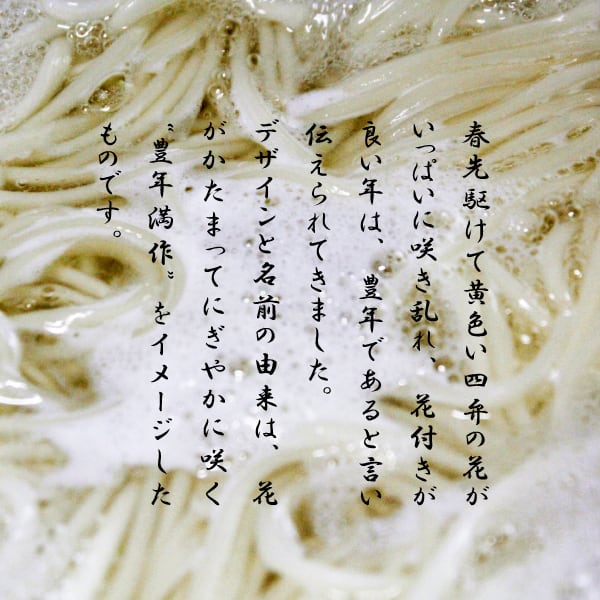 春先駆けて黄色い四弁の花が
いっぱいに咲き乱れ、花付きが
良い年は、豊年であると言い
伝えられてきました。
デザインと名前の由来は、花
がかたまってにぎやかに咲く
〝豊年満作〟をイメージした
ものです。